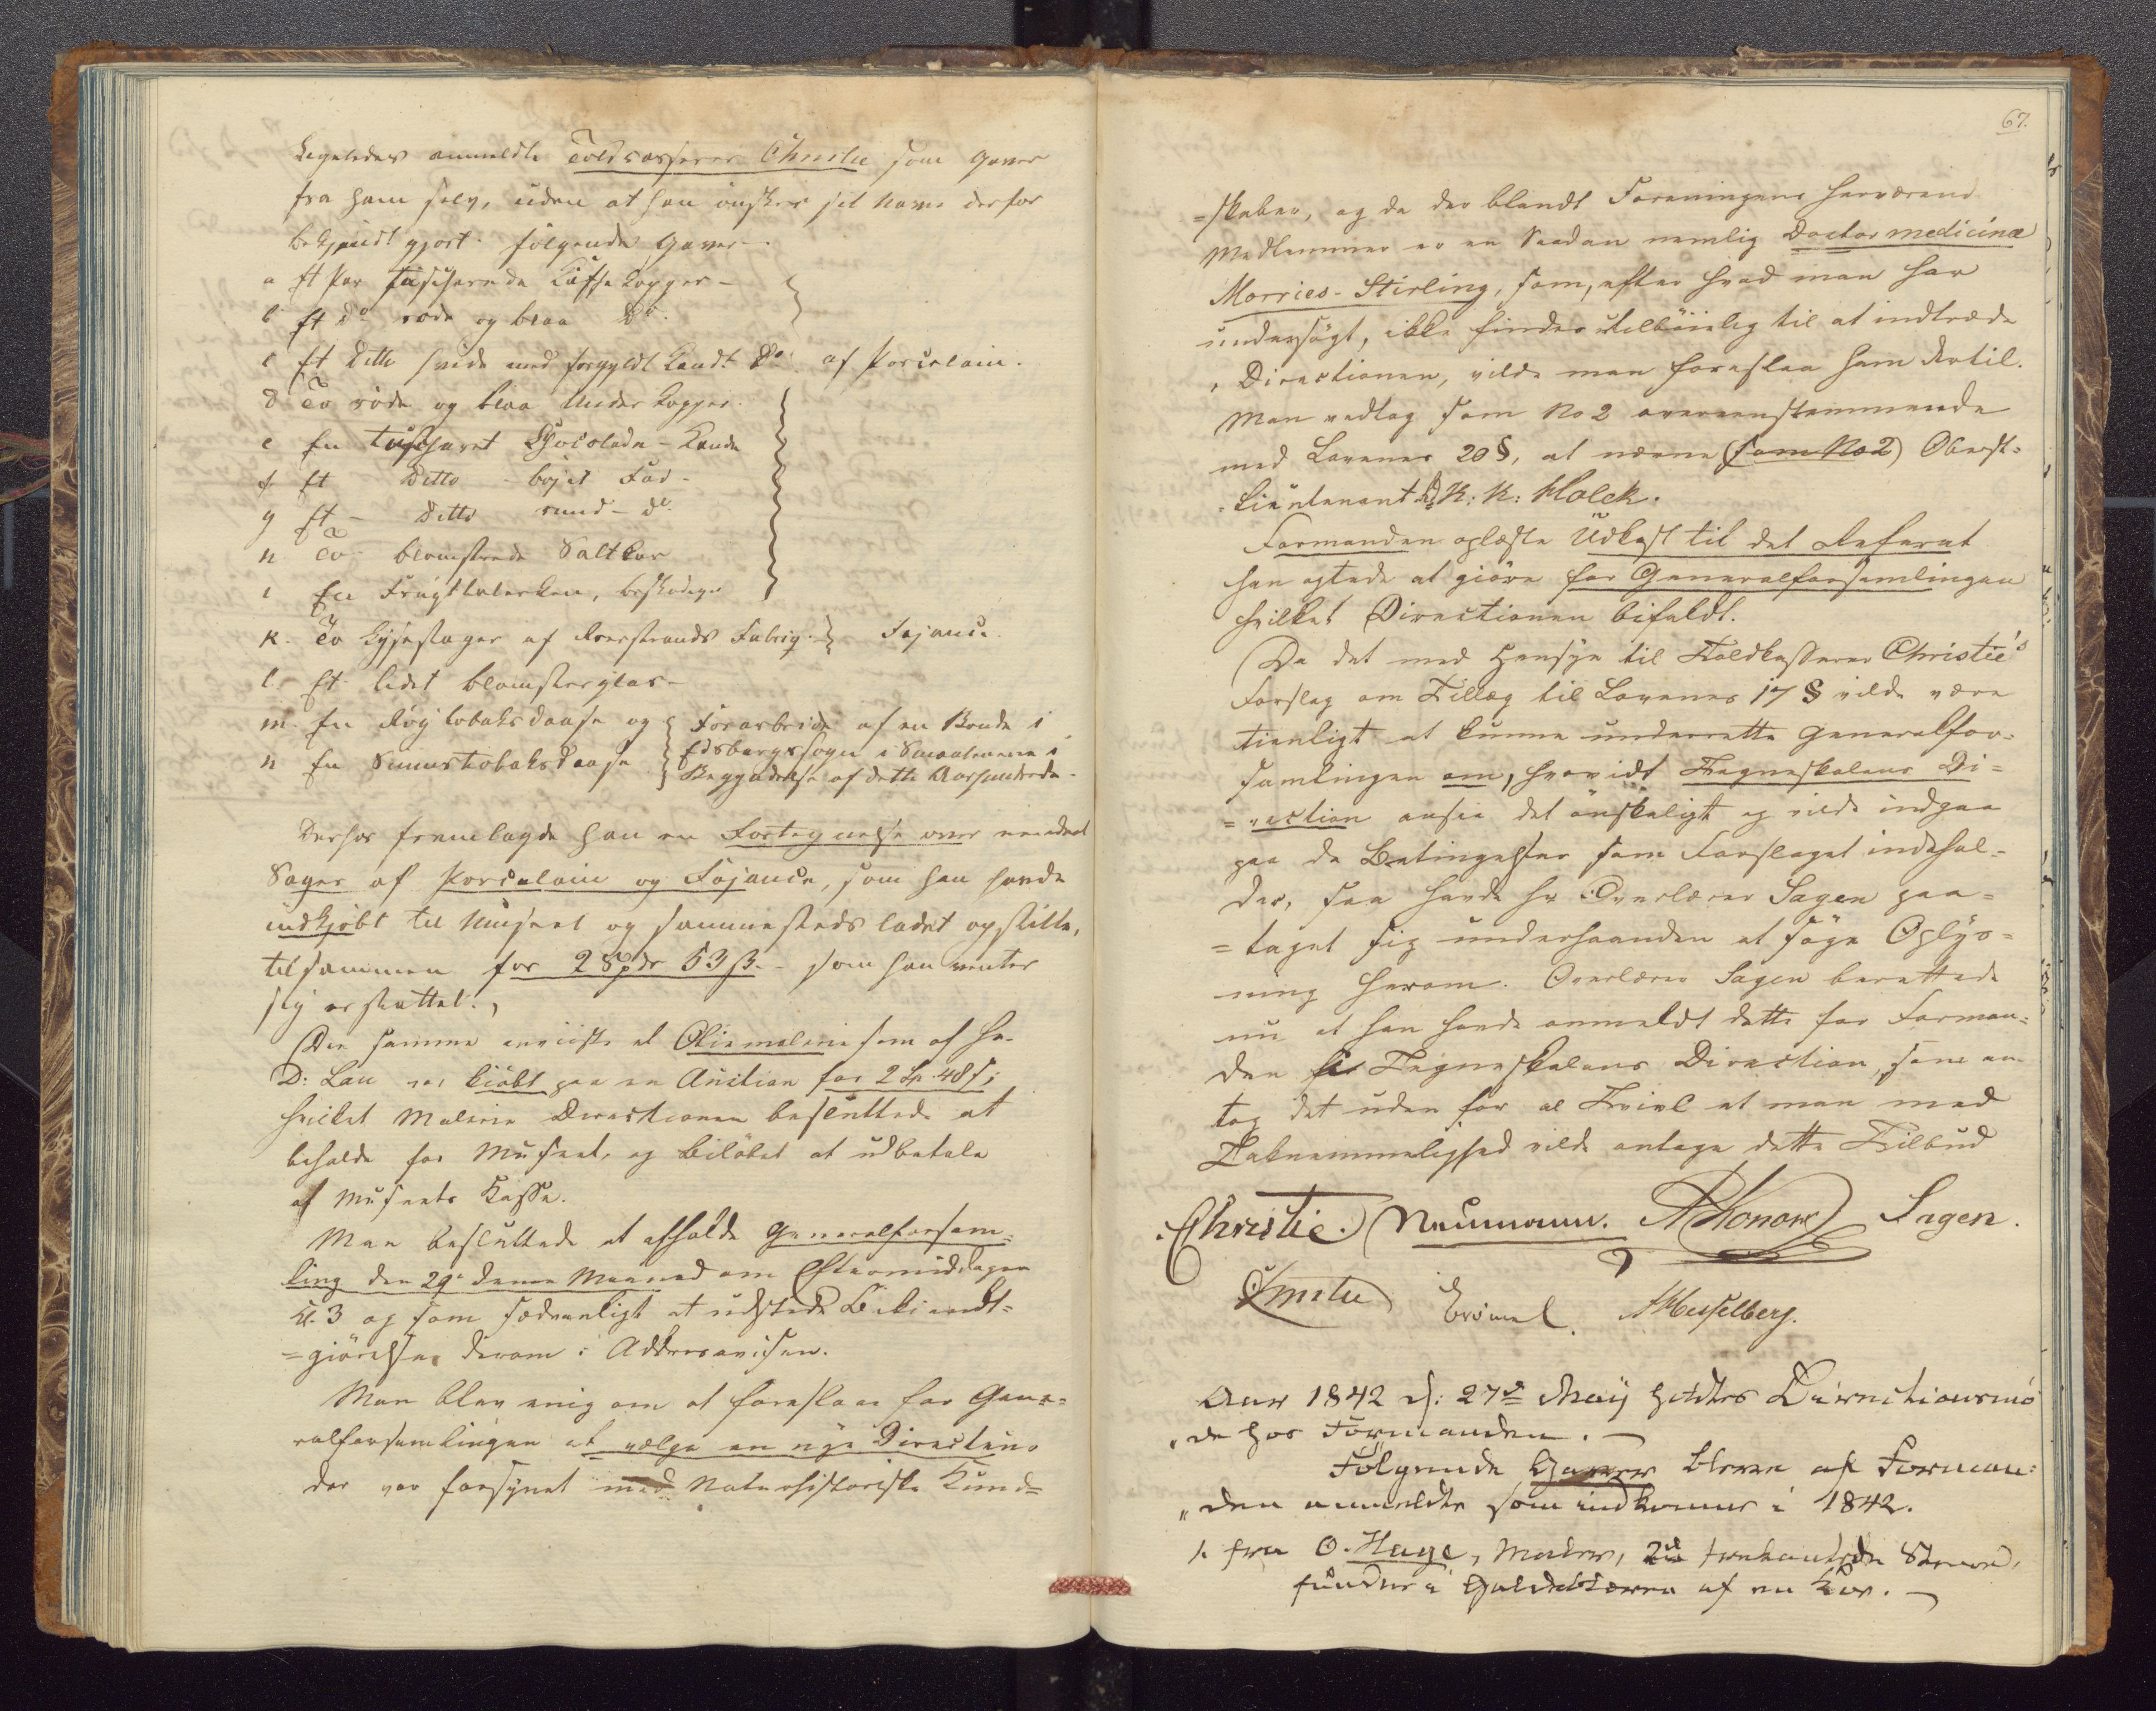 Ligeledes anmeldte Toldcasserer Christie som Gaver
fra ham selv, uden at han ønsker sit Navn derfor
bekjendt gjort. følgende Gaver -
a Et Par tuscherede Kaffe Kopper -
b Et Do røde og blaa Do.
c Et Ditto hvide med forgyldt Kandt Do. af Porcelain.
d To røde og blaa Under Kopper.
e En tuscheret Chocolade-Kande
f Et Ditto - bøjet Fad -
g Et - Ditto rund - Do.
h To blomstrede Saltkar
i En Frugttalerken, beskadiget
k. To Lysestager af Rørstrands Fabriq. Fajance.
l. Et lidet Blomsterglas -
m. En Røgtobaksdaase og Forarbeide af en Bonde i
n En Snuustobaksdaase Edsbergs sogn i Smaalenene i
Begyndelse af dette Aarhundrede.
Derhos fremlagde han en Fortegnelse over endeel
Sager af Porcelain og Fajance, som han havde
indkjøbt til Museet og sammesteds ladet opstille,
tilsammen for 2 Spdr 53 ß. - som han venter
sig erstattet.
Den samme anviiste et Oliemalerie som af Hr.
D: Lau var kiøbt paa en Auction for 2 48 ß;
hvilket Malerie Directionen besluttede at
beholde for Museet, og Beløbet at udbetale
af Museets Kasse.
Man besluttede at afholde Generalforsam-
ling den 29de denne Maaned om Eftermiddagen
Kl. 3 og som sædvanligt at udstede Bekiendt-
=giørelse derom i Addresavisen.
Man blev enig om at foreslaae for Gene-
ralforsamlingen at vælge en nye Directeur
der var forsynet med Naturhistoriske Kund=
67.
=skaber, og da der blandt Foreningens herværende
Medlemmer er en Saadan nemlig Doctor medicinæ
Morries-Stirling, som, efter hvad man har
undersøgt, ikke findes utilbøielig til at indtræde
i Directionen, vilde man foreslaa ham dertil.
Man vedtog som No 2 overeenstemmende
med Lovenes 20 §, at nævne (som No 2) Oberst-
lieutenant K: K: Holck.
Formanden oplæste Udkast til det Referat
han agtede at giøre for Generalforsamlingen
hvilket Directionen bifaldt.
Da det med Hensyn til Toldkasserer Christie's
Forslag om Tillæg til Lovenes 17 § vilde være
tienligt at kunne underrette Generalfor-
samlingen om, hvorvidt Tegneskolens Di=
=rection ansee det ønskeligt og vilde indgaa
paa de Betingelser som Forslaget indehol-
der, saa havde Hr Overlærer Sagen paa=
=taget sig underhaanden at søge Oplys=
ning herom. Overlærer Sagen berettede
nu at han havde anmeldt dette for Forman=
den for Tegneskolens Direction, som an
tog det uden for al Tvivl at man med
Taknemmelighed vilde antage dette Tilbud
Christie. Neumann. Konow Sagen.
Christie A Hesselberg.
Aar 1842 d: 27de May holdtes Directionsmø
"de hos Formanden. -
Følgende Gaver bleve af Forman:
"den anmeldte som indkomne i 1842.
1. fra O. Hage, Maler, 2de trekantede Steene,
funden i Galdeblæren af en Koe. -